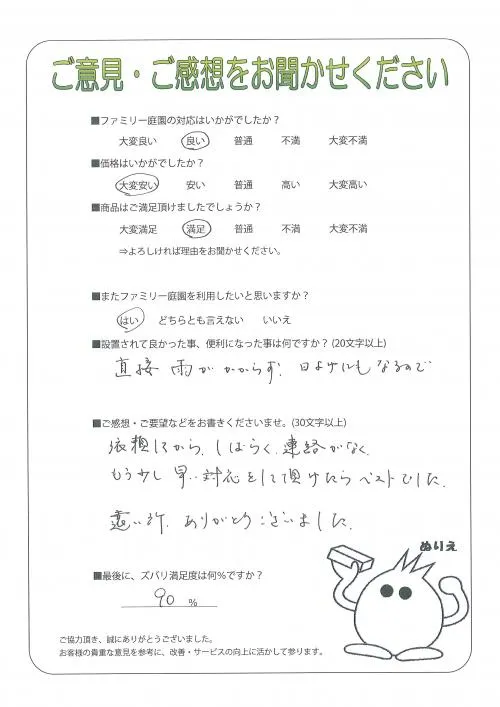 ご意見・ご感想をお聞かせください
■ファミリー庭園の対応はいかがでしたか？
大変良い 良い 普通 不満 大変不満
■価格はいかがでしたか？
大変安い 安い 普通 高い 大変高い
■商品はご満足頂けましたでしょうか？
大変満足 満足 普通 不満 大変不満
⇒よろしければ理由をお聞かせください。
■またファミリー庭園を利用したいと思いますか？
はい どちらとも言えない いいえ
■設置されて良かった事、便利になった事は何ですか？(20文字以上)
直接 雨が かからず、日よけにもなるので
■ご感想・ご要望などをお書きくださいませ。(30文字以上)
から、しばらく、連絡がなく
もう少し 早い対応をして頂けたら ベストでした。
ありがとうございました。
ぬりえ
■最後に、ズバリ満足度は何％ですか？
90 ％
ご協力頂き、誠にありがとうございました。
お客様の貴重な意見を参考に、改善・サービスの向上に活かして参ります。